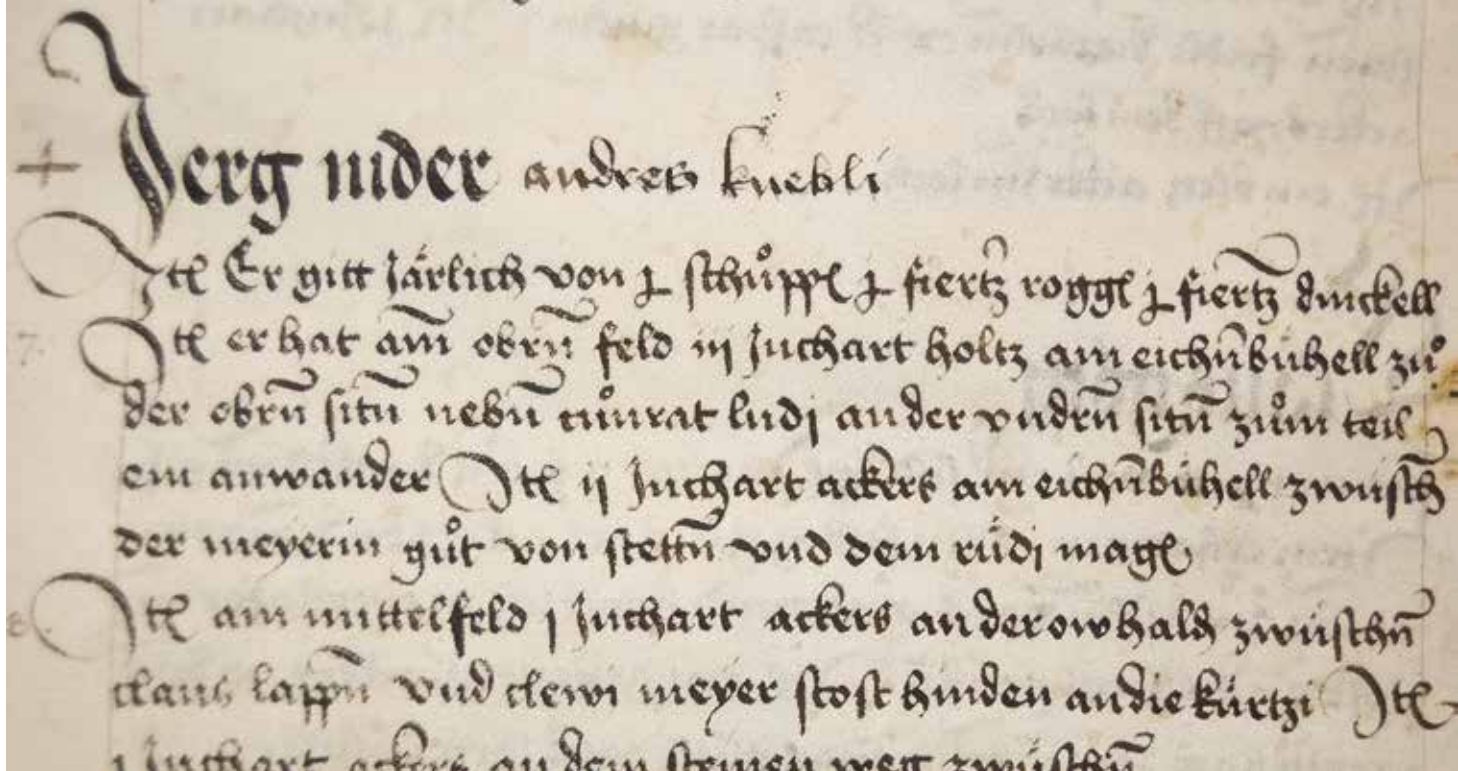 + Jerg nider andres kuebli
Jtem Er gitt Järlich von j schůppel j fiertel roggen j fiertel dinckell
7 Jtem er hat am obrn̄ feld iij Juchart holtz am eichn̄bühell zů
der obrn̄ sitn̄ nebn̄ cůnrat ludj an der vndrn̄ sitn̄ zům teil
ein anwander Jtem ij Juchart ackers am eichn̄bühell zwüsch
der meyerin gůt von stettn̄ vnd dem rüdj magen
8 Jtem am mittelfeld j Juchart ackers an der owhald zwüschn̄
claus lappn̄ vnd clewi meyer stost hinden an die kürtzi Jtem
j Juchart ackers an dem steinen weg zwüschn̄